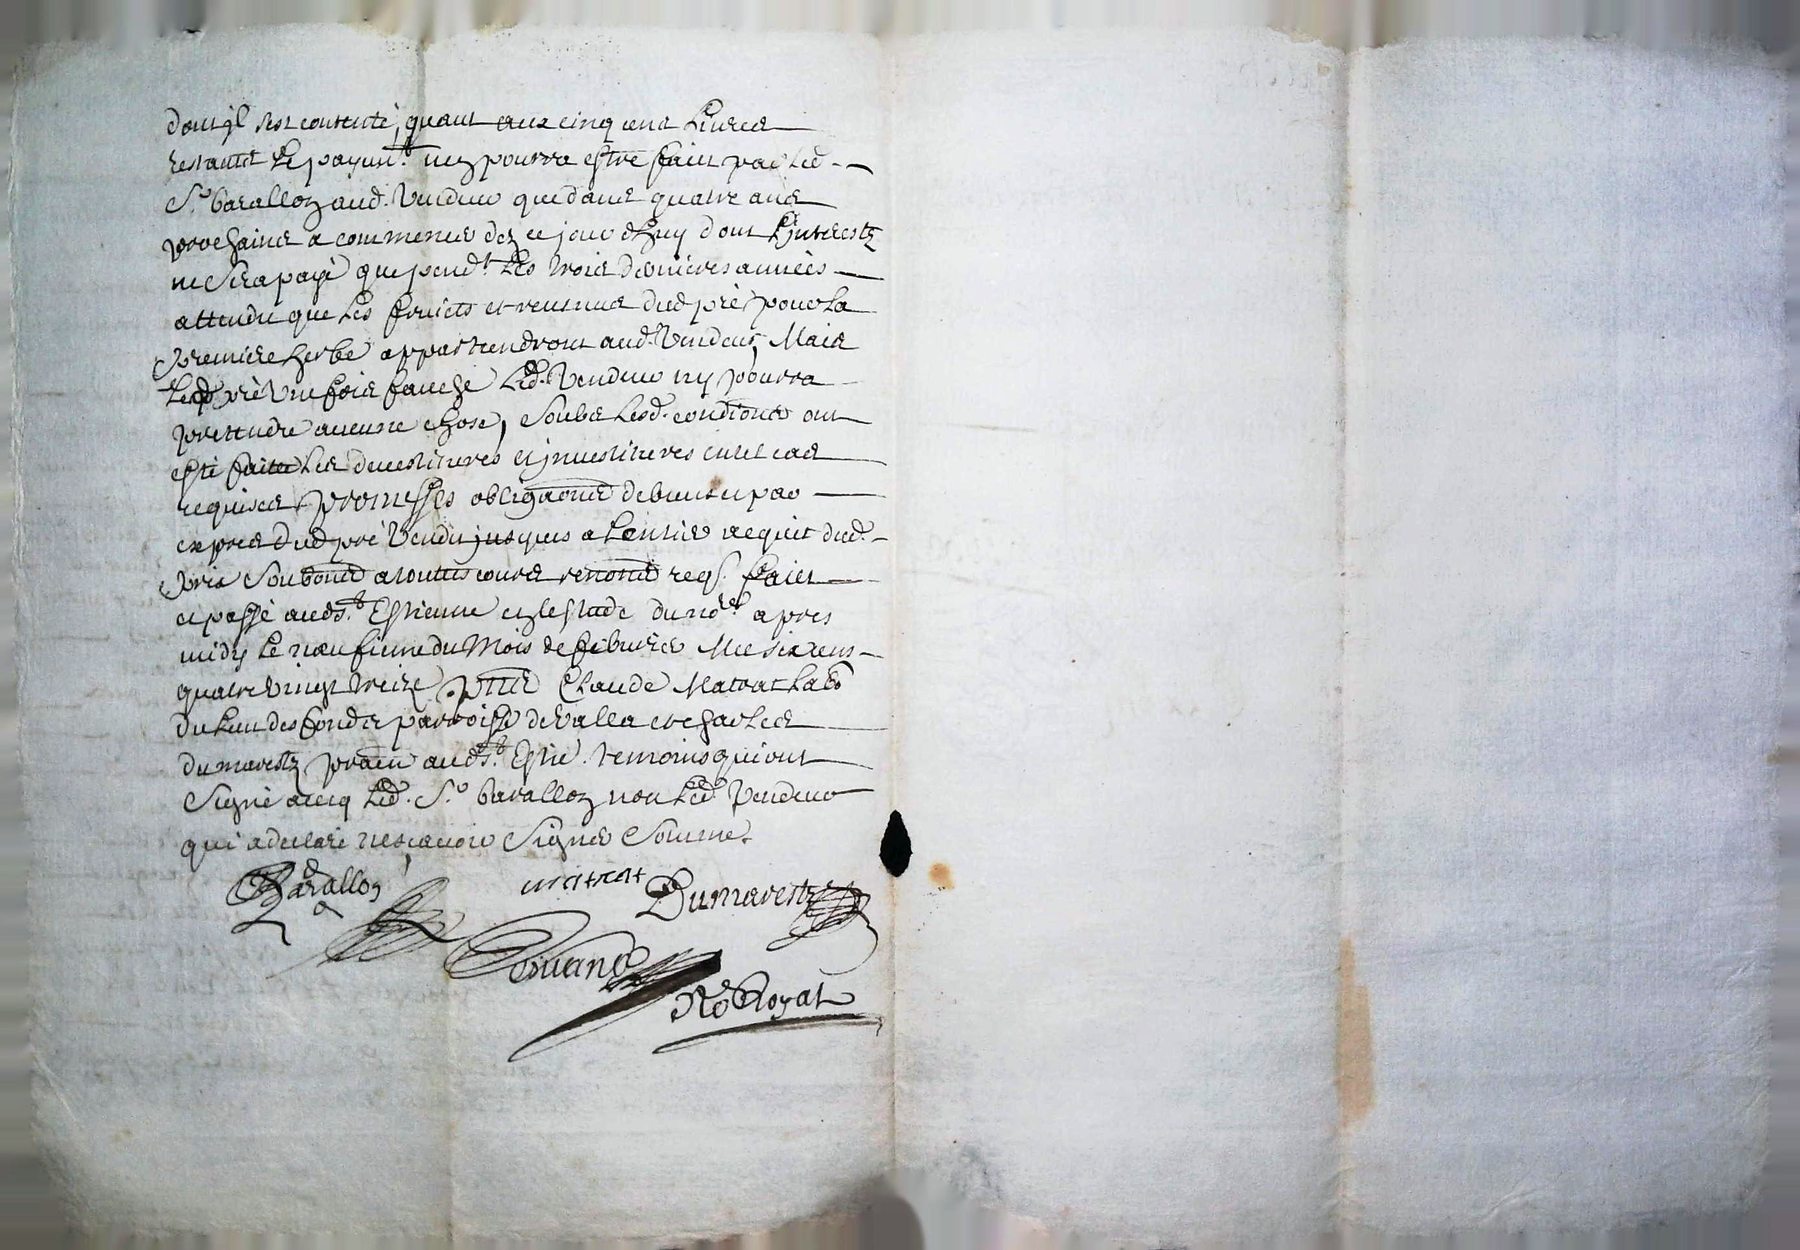 dont jl s'est contenté, quant aux cinq cens Livres
restantes Le payemt. nez pourra estre faict par Led.
Sr. barallon aud. Vendeur que dans quatre ans
prochains a commencer dez ce jour d'huy dont L'jnterestz
ne sera payé que pendt. Les trois dernieres années
attendu que Les fruicts et revenus dud pré pour La
premiere herbe appartiendront aud. Vendeur, Mais
Led pré une fois fauché Led. Vendeur ny pourra
pretendre aucune chose, Soubs Lesd. condĩons ont
esté faites Les devestitures et jnvestitures en tel cas
requises promesses obligaõns de bonne et par
exprez dud pré Vendu jusques a L'entier acquit dud.
prix Soubmõns a touttes cours renonõns reqs. Faict
et passé aud St. Estienne en l'estude du nore. apres
midy Le neufieme du Mois de febvrier Mil six cens
quatre vingt treize pñts Claude Matrat Labr
du Lieu des fonds parroisse de Valla et charles
dumarestz praticn aud St. Estie. temoins qui ont
Signé avecq Led. Sr. barallon non Led Vendeur
qui a declaré ne scavoir Signer Sommé.
Barallon
matrat
Dumarestz
No Royal